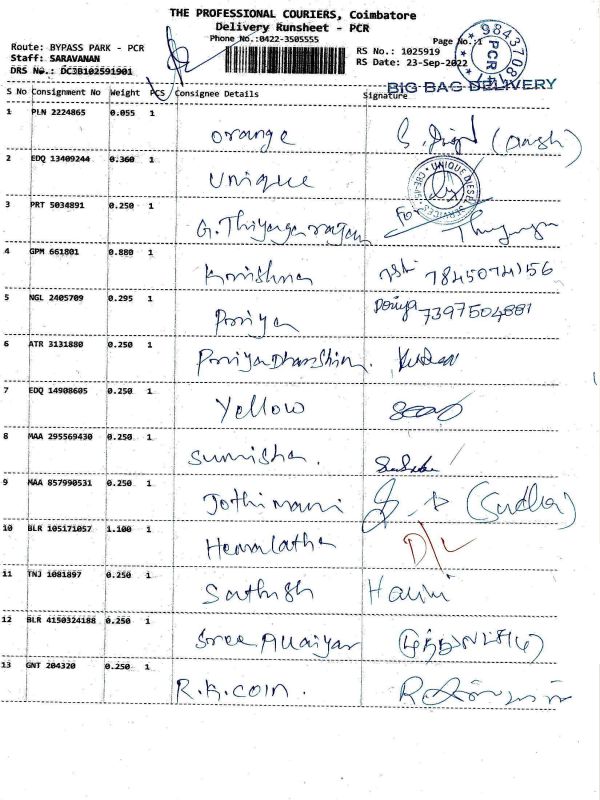 THE PROFESSIONAL COURIERS, Coimbatore
Delivery Runsheet - PCR
Phone No.:0422-3505555
Page No.:1
Route: BYPASS PARK - PCR
Staff: SARAVANAN
DRS No.: DC3B102591901
RS No.: 1025919
RS Date: 23-Sep-2022
PCR
BIG BAG DELIVERY
S No Consignment No Weight PCS Consignee Details Signature
1 PLN 2224865 0.055 1 Orange
2 EDQ 13409244 0.360 1 Unique
UNIQUE DIESEL SERVICES
3 PRT 5034891 0.250 1 G. For
4 GPM 661801 0.880 1 Krrishna 7845074156
5 NGL 2405709 0.295 1 Prriya 7397504881
6 ATR 3131880 0.250 1
7 EDQ 14908605 0.250 1 Yellow
8 MAA 295569430 0.250 1 Sumisha.
9 MAA 857990531 0.250 1 Jothimani (Sudha)
10 BLR 105171057 1.100 1 Hemalatha D/L
11 TNJ 1081897 0.250 1 Sathish Harini
12 BLR 4150324188 0.250 1 Sree
13 GNT 204320 0.250 1 R.K.COIN.